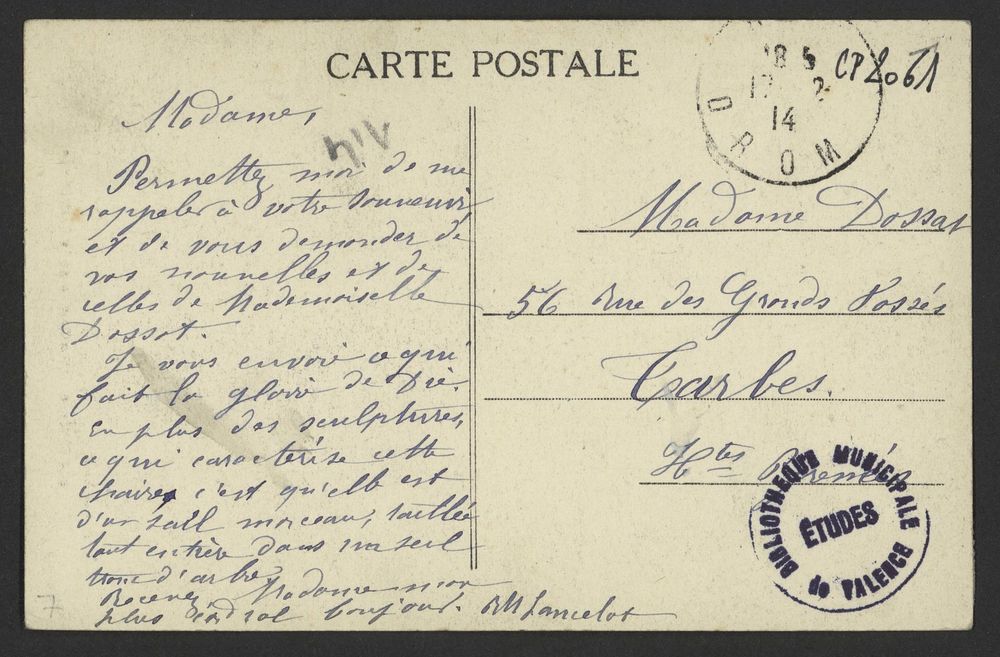 CARTE POSTALE
Madame,
Permettez moi de me
rappeler à votre souvenir
et de vous demander de
vos nouvelles et de
celles de Mademoiselle
Dossat.
Je vous envoie ce qui
fait la gloire de Die.
En plus des sculptures,
ce qui caractérise cette
chaire c'est qu'elle est
d'un seul morceau, taillée
tout entière dans un seul
tronc d'arbre
Recevez Madame mon
plus cordial bonjour. Lancelot
7
18 5
17 2
14
DROM
CP 2061
Madame Dossat
56 Rue des Grands Fossés
Tarbes.
Htes Pyrénées
BIBLIOTHEQUE MUNICIPALE
ÉTUDES
de VALENCE